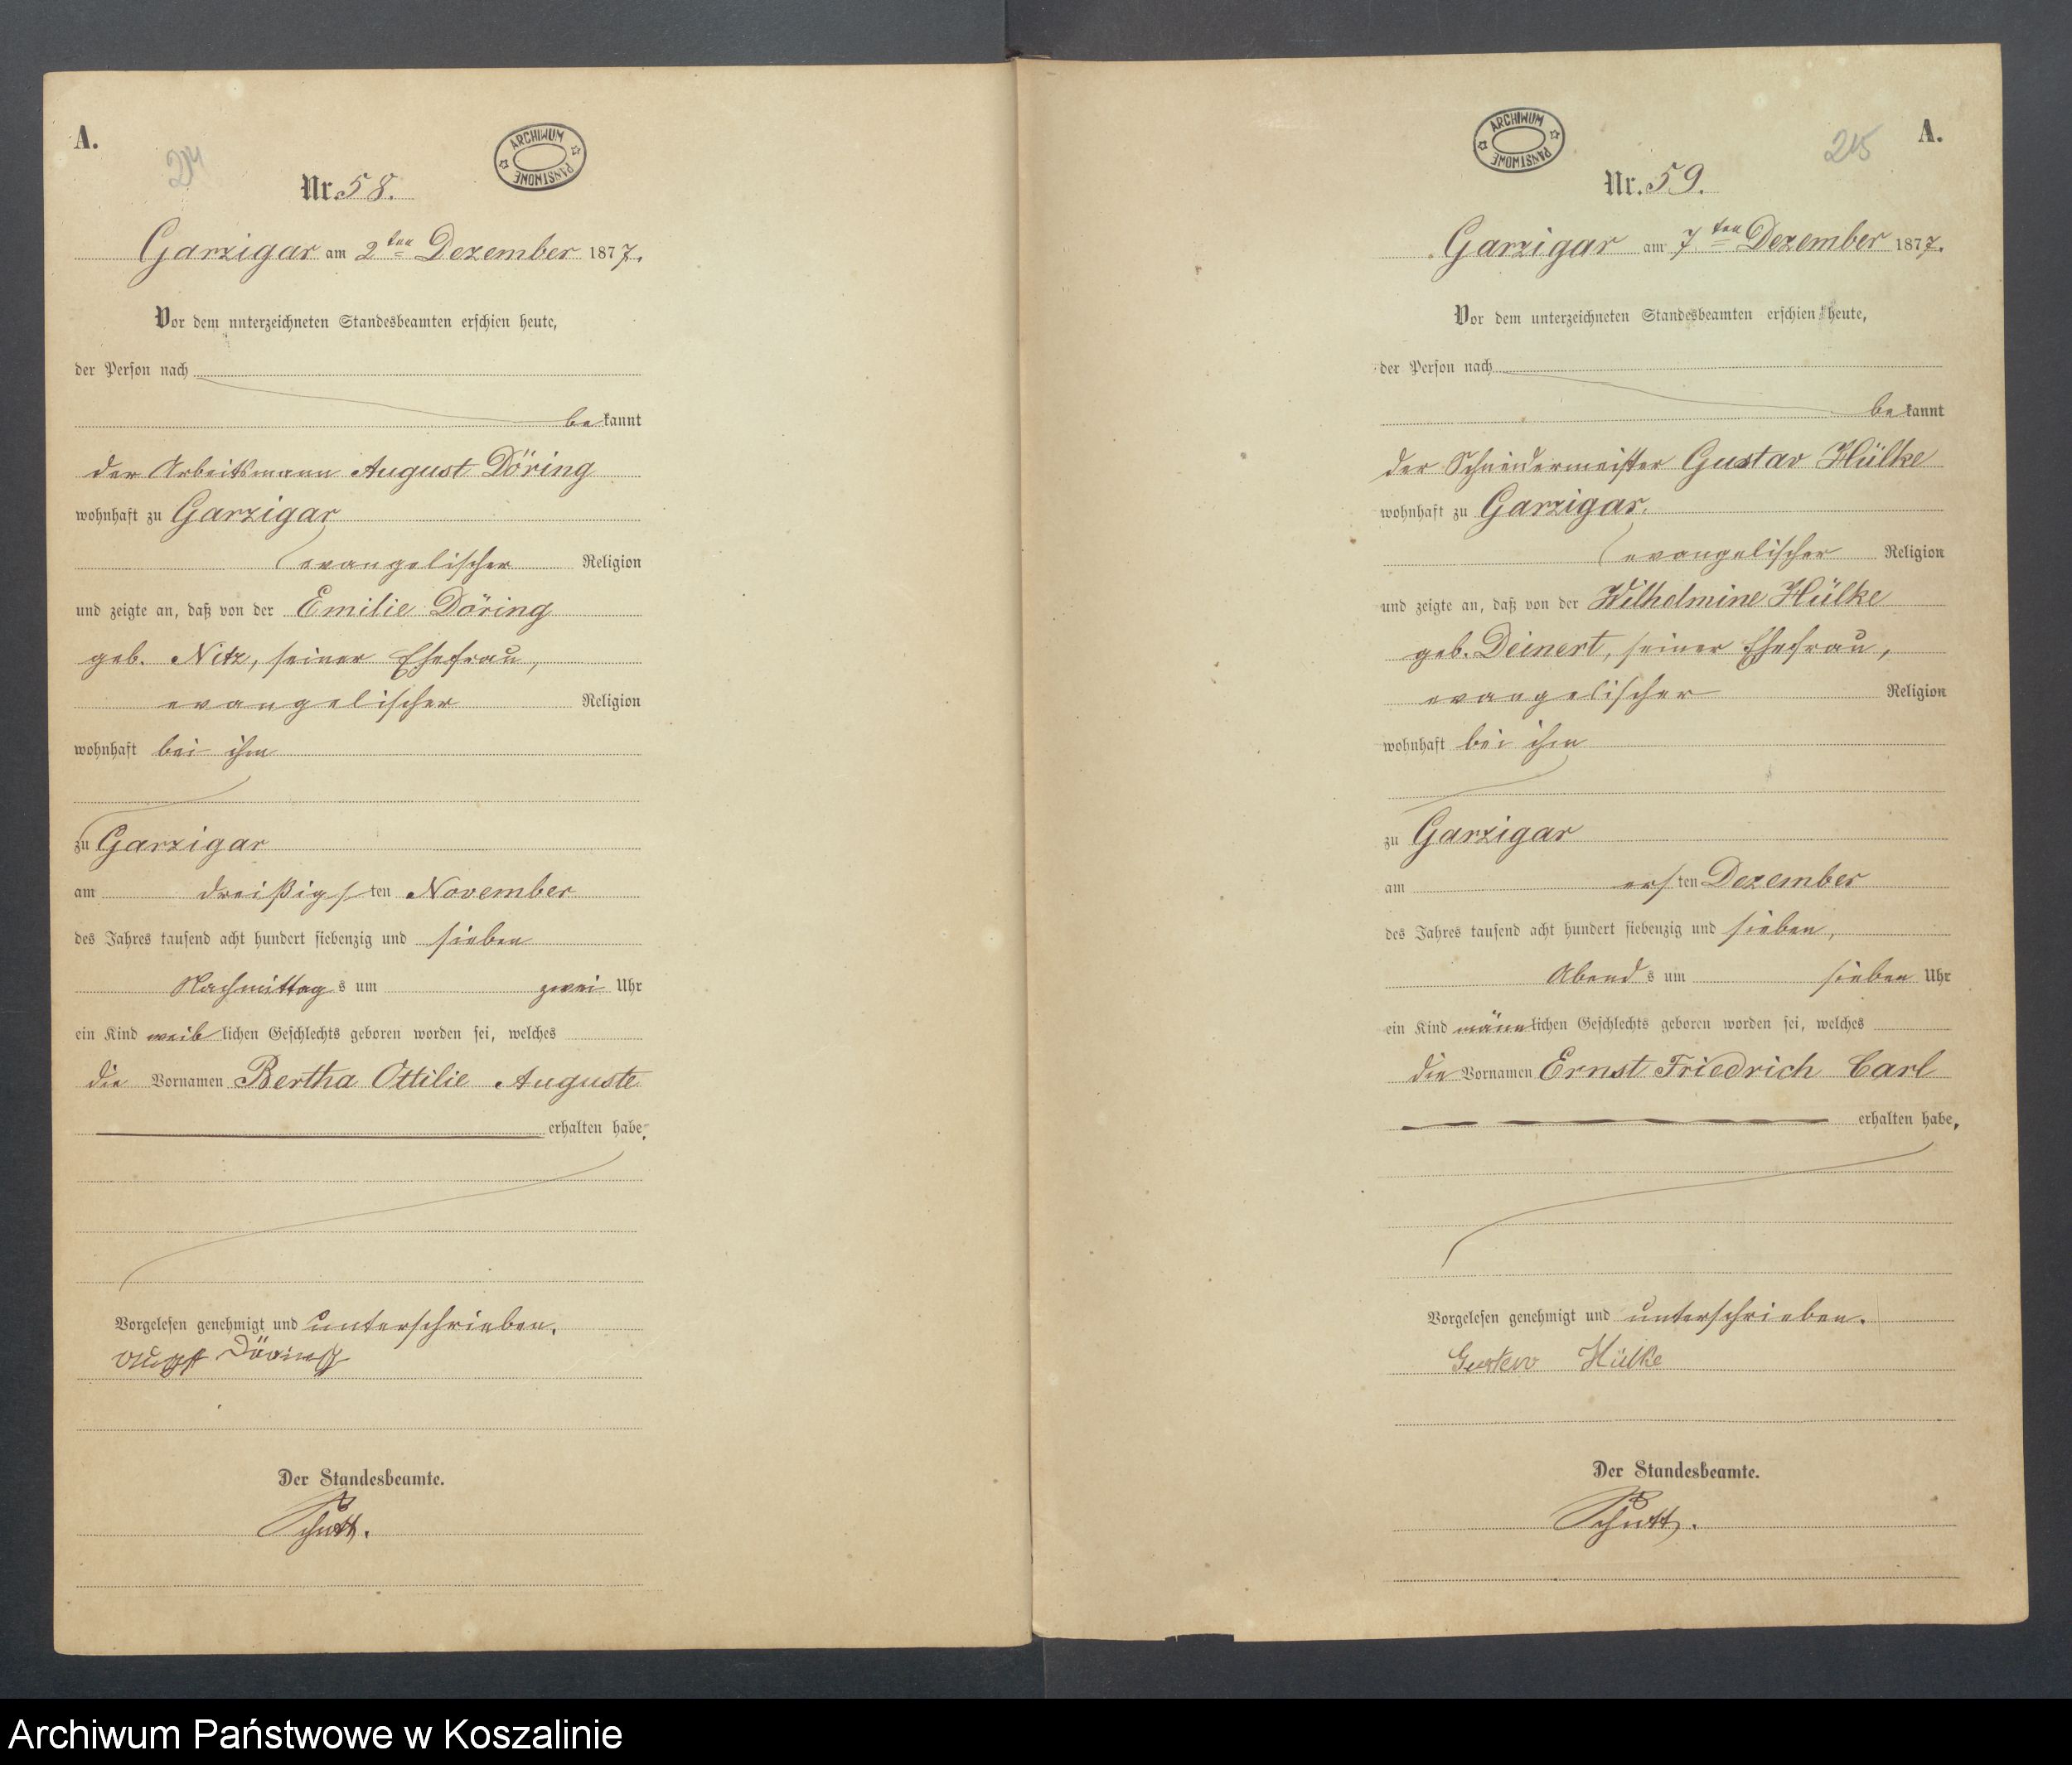 A.
214
ARCHIWUM PAŃSTWOWE
Nr. 58.
Garzigar am 2ten Dezember 1877.
Vor dem unterzeichneten Standesbeamten erschien heute,
der Person nach
bekannt
der Arbeitsmann August Döring
wohnhaft zu Garzigar
evangelischer Religion
und zeigte an, daß von der Emilie Döring
geb. Nitz, seiner Ehefrau,
evangelischer Religion
wohnhaft bei ihm
zu Garzigar
am dreißigsten November
des Jahres tausend acht hundert siebenzig und sieben
Nachmittags um zwei Uhr
ein Kind weiblichen Geschlechts geboren worden sei, welches
die Vornamen Bertha Ottilie Auguste
erhalten habe.
Vorgelesen genehmigt und unterschrieben.
August Döring
Der Standesbeamte.
Schütt.
A.
215
ARCHIWUM PAŃSTWOWE
Nr. 59.
Garzigar am 7ten Dezember 1877.
Vor dem unterzeichneten Standesbeamten erschien heute,
der Person nach
bekannt
der Schneidermeister Gustav Hülke
wohnhaft zu Garzigar,
evangelischer Religion
und zeigte an, daß von der Wilhelmine Hülke
geb. Deinert, seiner Ehefrau,
evangelischer Religion
wohnhaft bei ihm
zu Garzigar
am ersten Dezember
des Jahres tausend acht hundert siebenzig und sieben,
Abends um sieben Uhr
ein Kind männlichen Geschlechts geboren worden sei, welches
die Vornamen Ernst Friedrich Carl
erhalten habe.
Vorgelesen genehmigt und unterschrieben.
Gustav Hülke
Der Standesbeamte.
Schütt.
Archiwum Państwowe w Koszalinie